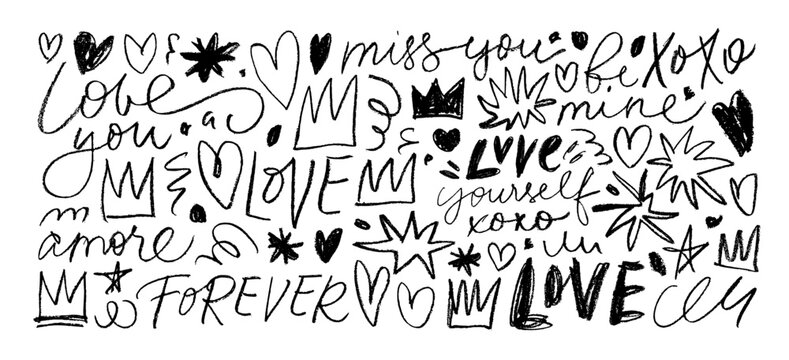 love
you
miss you
be
mine
xoxo
LOVE
Love
yourself
xoxo
amore
FOREVER
LOVE